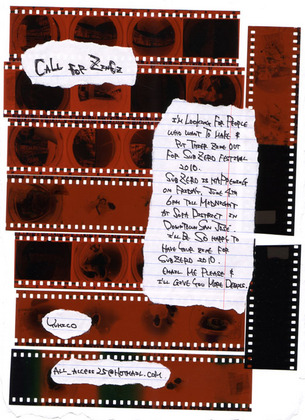 CALL FOR ZINES
I'M LOOKING FOR PEOPLE
WHO WANT TO MAKE &
PUT THEIR ZINE OUT
FOR SUBZERO FESTIVAL
2010.
SUBZERO IS HAPPENING
ON FRIDAY, JUNE 4TH
6PM TILL MIDNIGHT
AT SOFA DISTRICT IN
DOWNTOWN SAN JOSE.
I'LL BE SO HAPPY TO
HAVE YOUR ZINE FOR
SUBZERO 2010.
EMAIL ME PLEASE &
I'LL GIVE YOU MORE DETAILS.
ALL_ACCESS25@HOTMAIL.COM